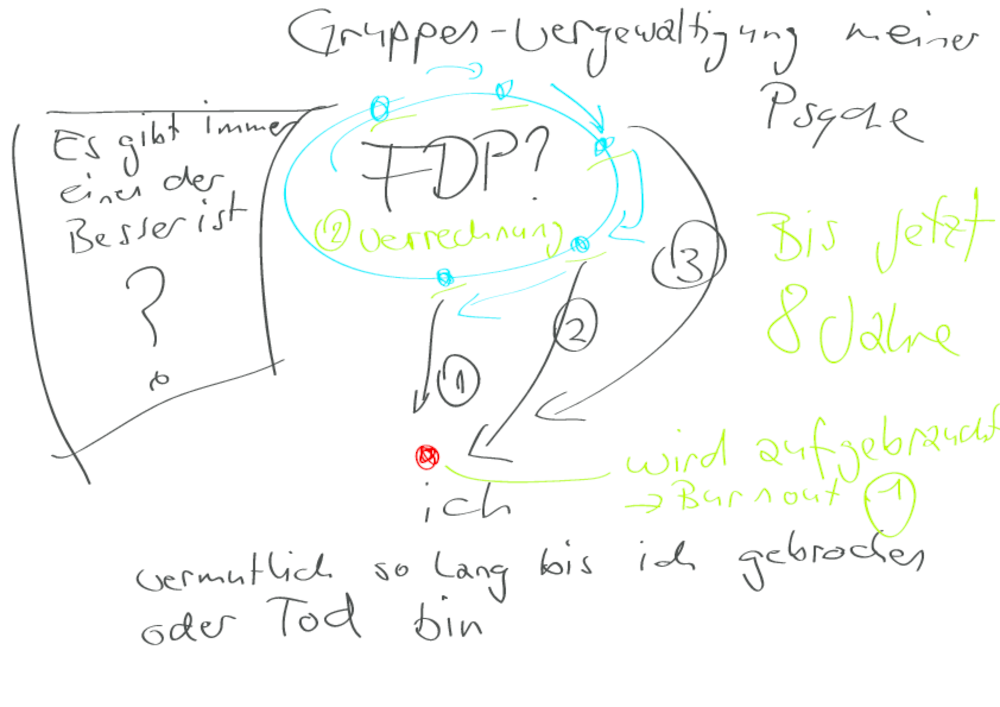 Gruppen-vergewaltigung meiner
Psyche
Es gibt immer
einen der
Besser ist
?
FDP?
② verrechnung
③
②
①
Bis Jetzt
8 Jahre
ich
wird aufgebraucht
→ Burnout ①
vermutlich so lang bis ich gebrochen
oder Tod bin